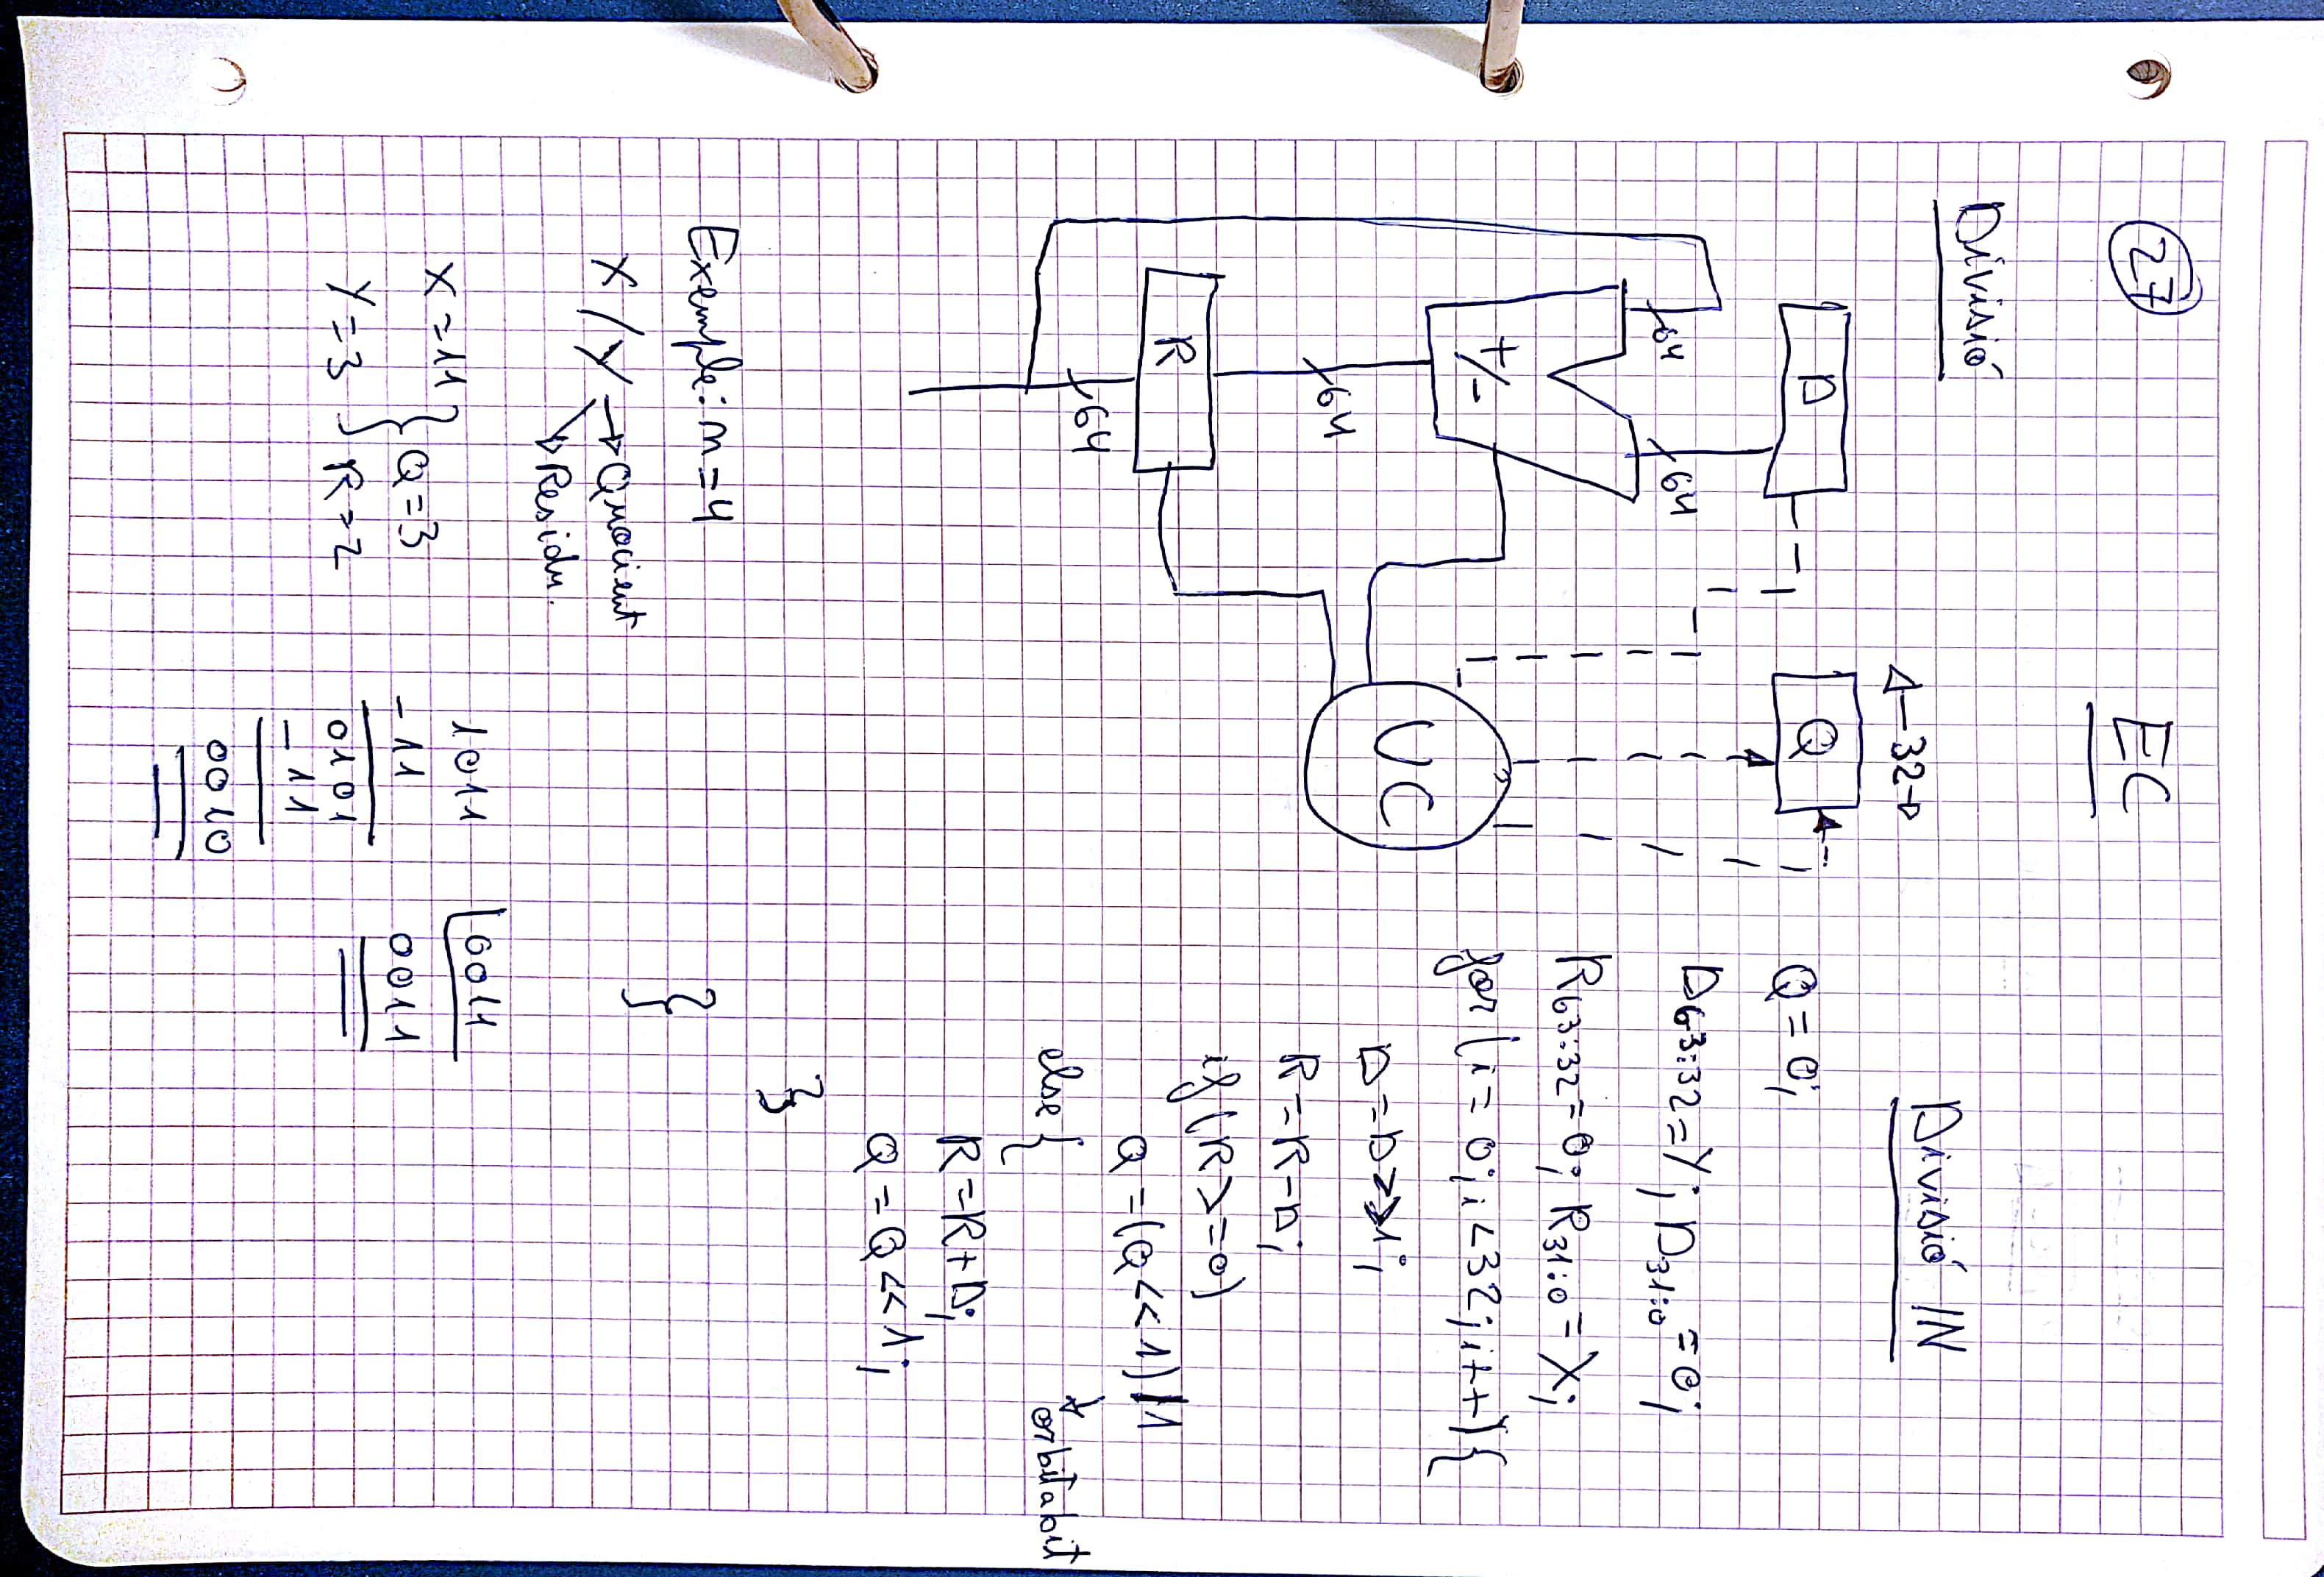 27
EC
Divisió
Divisió IN
32
D
Q
64
64
+/-
UC
64
R
64
Q = 0;
D63:32 = Y; D31:0 = 0;
R63:32 = 0; R31:0 = X;
for (i = 0; i < 32; i++) {
D = D >> 1;
R = R - D;
if (R >= 0)
Q = (Q << 1) | 1
or bit a bit
else {
R = R + D;
Q = Q << 1;
}
}
Exemple: n = 4
X / Y → Quocient
Residu.
X = 11
Y = 3
Q = 3
R = 2
1011 0011
- 11 0011
0101
- 11
0010